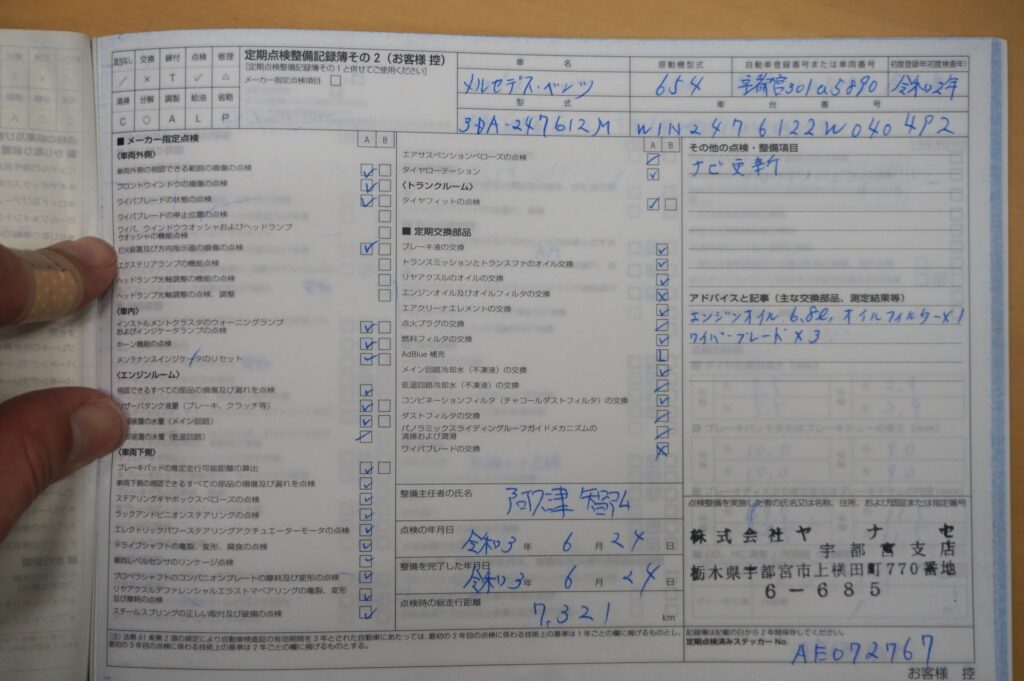 該当なし 交換 締付 点検 修理
／ × T ✓ △
清掃 分解 調整 給油 省略
C ○ A L P
定期点検整備記録簿その2（お客様 控）
[定期点検整備記録簿その1と併せてご使用ください]
メーカー指定点検項目 □
車 名
メルセデス・ベンツ
原動機型式
654
自動車登録番号または車両番号
宇都宮301 5890
初度登録年(初度検査年)
令和2年
型 式
3DA-247612M
車 台 番 号
W1N2476122W040492
■ メーカー指定点検
A B
〈車両外側〉
車両外側の視認できる範囲の損傷の点検
フロントウインドウの損傷の点検
ワイパブレードの状態の点検
ワイパブレードの停止位置の点検
ワイパ、ウインドウウオッシャおよびヘッドランプ
ウオッシャの機能点検
灯火装置及び方向指示器の損傷の点検
エクステリアランプの機能点検
ヘッドランプ光軸調整の機能の点検
ヘッドランプ光軸の点検、調整
〈車内〉
インストルメントクラスタのウォーニングランプ
およびインジケータランプの点検
ホーン機能の点検
メンテナンスインジケータのリセット
〈エンジンルーム〉
視認できるすべての部品の損傷及び漏れを点検
リザーバタンク液量（ブレーキ、クラッチ等）
装置の水量（メイン回路）
装置の水量（低温回路）
〈車両下側〉
ブレーキパッドの推定走行可能距離の算出
車両下側の視認できるすべての部品の損傷及び漏れを点検
ステアリングギヤボックスベローズの点検
ラックアンドピニオンステアリングの点検
エレクトリックパワーステアリングアクチュエーターモータの点検
ドライブシャフトの亀裂、変形、腐食の点検
車両レベルセンサのリンケージ点検
プロペラシャフトのコンパニオンプレートの摩耗及び変形の点検
リヤアクスルデファレンシャルエラストマベアリングの亀裂、変形
及び摩耗の点検
スチールスプリングの正しい取付及び破損の点検
A B
エアサスペンションベローズの点検
タイヤローテーション
〈トランクルーム〉
タイヤフィットの点検
■ 定期交換部品
ブレーキ液の交換
トランスミッションとトランスファのオイル交換
リヤアクスルのオイルの交換
エンジンオイル及びオイルフィルタの交換
エアクリーナエレメントの交換
点火プラグの交換
燃料フィルタの交換
AdBlue 補充
メイン回路冷却水（不凍液）の交換
低温回路冷却水（不凍液）の交換
コンビネーションフィルタ（チャコールダストフィルタ）の交換
ダストフィルタの交換
パノラミックスライディングルーフガイドメカニズムの
清掃および潤滑
ワイパブレードの交換
整備主任者の氏名
阿津 智弘
点検の年月日
令和3年 6月24日
整備を完了した年月日
令和3年 6月24日
点検時の総走行距離
7,321 km
その他の点検・整備項目
ナビ更新
アドバイスと記事（主な交換部品、測定結果等）
エンジンオイル 6.8ℓ, オイルフィルター×1
ワイパーブレード×3
点検整備を実施した者の氏名又は名称、住所、および認証または指定番号
株式会社ヤナセ
宇都宮支店
栃木県宇都宮市上横田町770番地
6-685
(注) 法第61条第2項の規定により自動車検査証の有効期間を3年とされた自動車にあたっては、最初の2年目の点検に係わる技術上の基準は1年ごとの欄に掲げるものとし、
最初の3年目の点検に係わる技術上の基準は2年ごとの欄に掲げるものとする。
記録簿は記載の日から2年間保存してください。
定期点検済みステッカー No.
AE072767
お客様 控